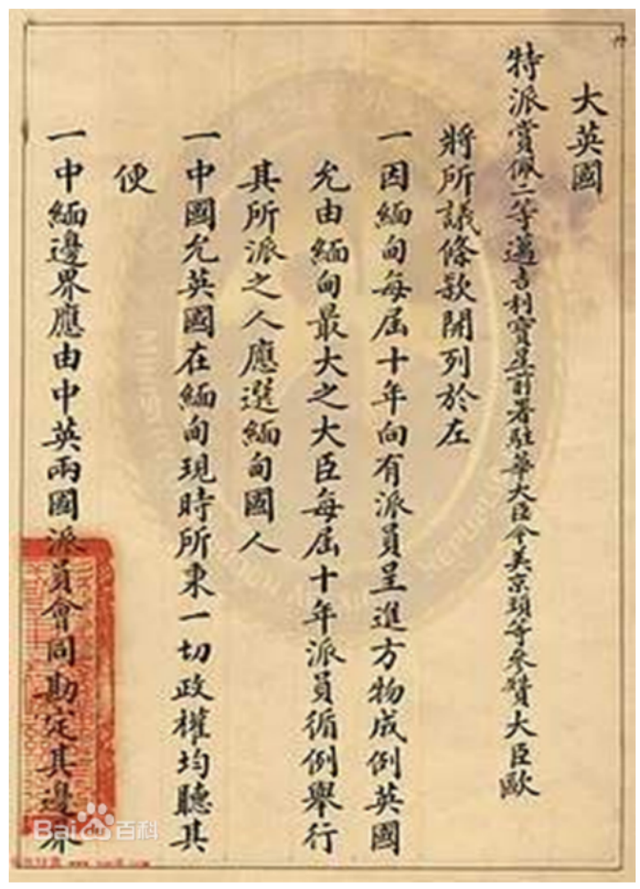 大英國
特派賞佩二等邁吉利寶星前署駐華大臣今美京頭等參贊大臣歐
將所議條款開列於左
一因緬甸每屆十年向有派員呈進方物成例英國
允由緬甸最大之大臣每屆十年派員循例舉行
其所派之人應選緬甸國人
一中國允英國在緬甸現時所秉一切政權均聽其
便
一中緬邊界應由中英兩國派員會同勘定其邊界
Baidu百科